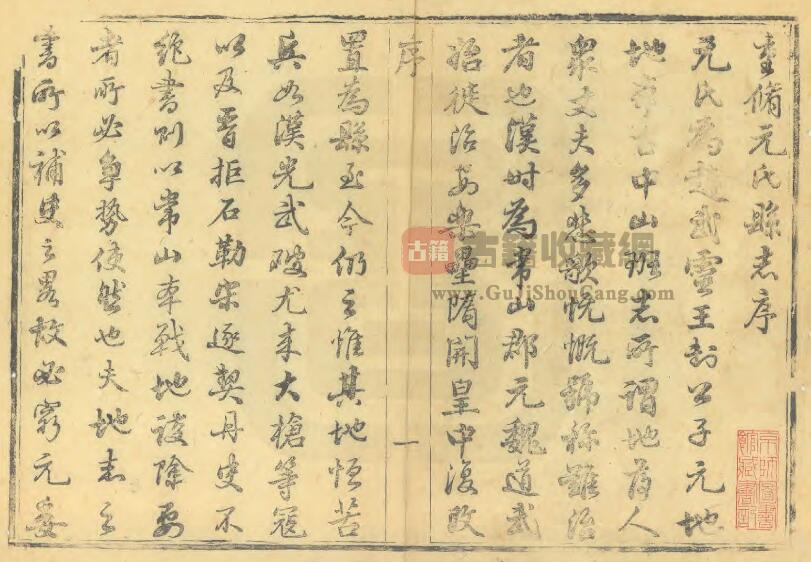 重脩元氏縣志序
元氏為趙武靈王封公子元地
地介古中山班志所謂地薄人
衆丈夫多悲歌忼慨號稱難治
者也漢時為常山郡元魏道武
始徙治安樂壘隋開皇中復改
序
一
置為縣至今仍之惟其地恒苦
兵如漢光武破尤來大槍等寇
以及晋拒石勒宋逐契丹史不
絶書則以常山車戰地護除要
者所必争勢使然也夫地志之
書所以補史之畧故必窮元委
古籍
古籍收藏網
www.GuJiShouCang.com